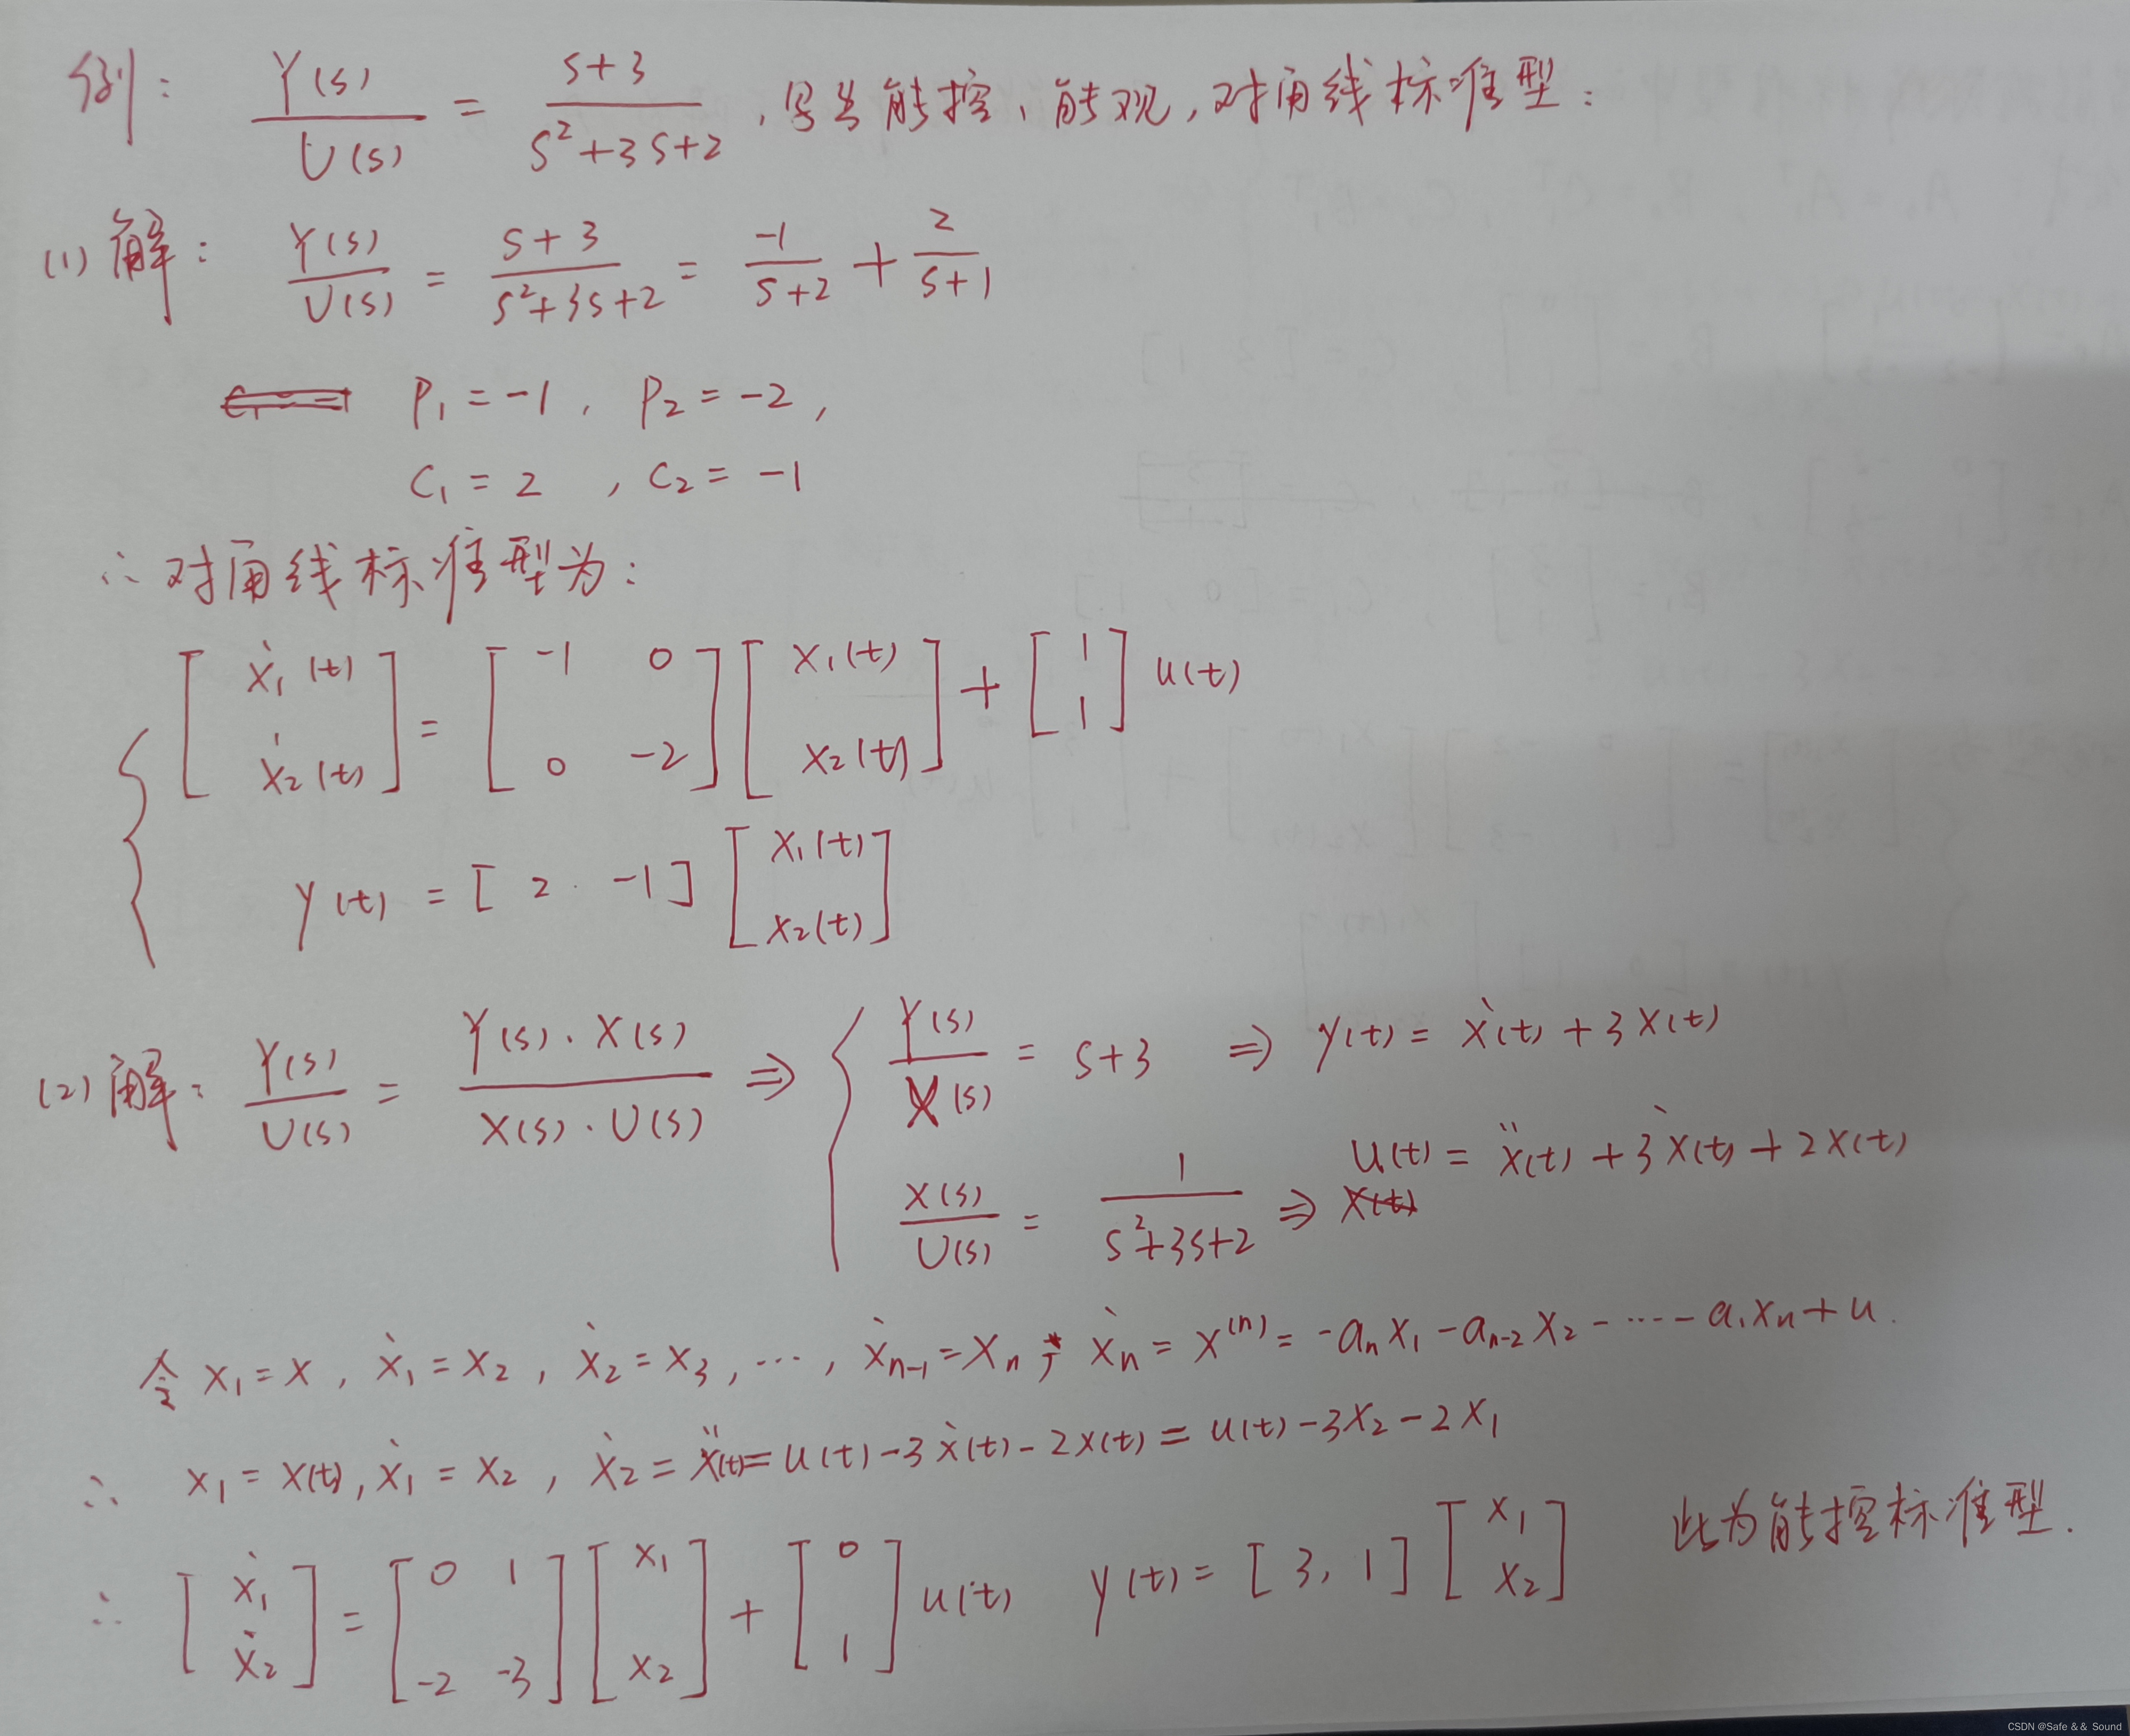 例： Y(s)/U(s) = (s+3)/(s²+3s+2) ，写出能控、能观，对角线标准型：
(1) 解： Y(s)/U(s) = (s+3)/(s²+3s+2) = -1/(s+2) + 2/(s+1)
P₁ = -1， P₂ = -2，
C₁ = 2 ，C₂ = -1
∴ 对角线标准型为：
[ẋ₁(t); ẋ₂(t)] = [-1 0; 0 -2] [x₁(t); x₂(t)] + [1; 1] u(t)
y(t) = [2 -1] [x₁(t); x₂(t)]
(2) 解： Y(s)/U(s) = Y(s)·X(s)/X(s)·U(s) ⇒ { Y(s)/X(s) = s+3 ⇒ y(t) = ẋ(t) + 3x(t)
X(s)/U(s) = 1/(s²+3s+2) ⇒ u(t) = ẍ(t) + 3ẋ(t) + 2x(t)
令 x₁ = x， ẋ₁ = x₂， ẋ₂ = x₃， ⋯， ẋₙ₋₁ = xₙ； ẋₙ = x⁽ⁿ⁾ = -aₙx₁ - aₙ₋₂x₂ - ⋯⋯ - a₁xₙ + u.
∴ x₁ = x(t), ẋ₁ = x₂， ẋ₂ = ẍ(t) = u(t) - 3ẋ(t) - 2x(t) = u(t) - 3x₂ - 2x₁
∴ [ẋ₁; ẋ₂] = [0 1; -2 -3] [x₁; x₂] + [0; 1] u(t) y(t) = [3, 1] [x₁; x₂] 此为能控标准型.
CSDN @Safe && Sound